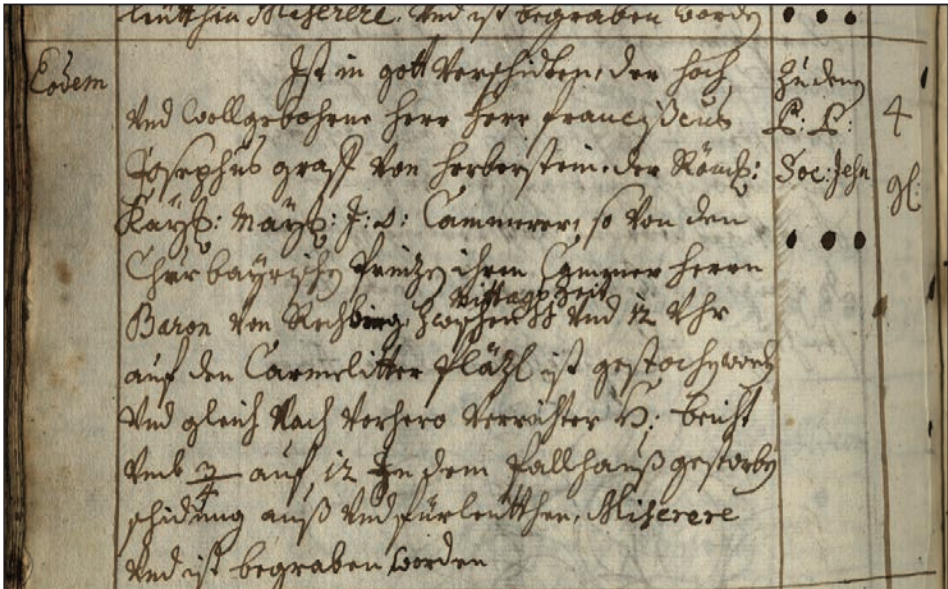 leütthin Miserere. Vnd ist begraben worden
Eodem
Ist in gott Verschidten, der hoch
Vnd Wollgebohrne herr herr franciscus
Josephus graff von herberstein. der Röm:
Kayß: Mayß: J: O: Cammerer, so Von den
Churbayrischen Printzen ihren Cammer herrn
Mittagß Zeit
Baron von Rechberg, Zwischen 11 Vnd 12 Vhr
auf den Carmelitter Pläzl ist gestochen worden
Vnd gleich Nach Vorhero Verrichter H: beicht
Vmb 3/4 auf 12 In dem Pallhauß gestorben
schidung auß Vnd fürleütthen, Miserere
Vnd ist begraben worden
Zu denen
P: P:
Soc: Jesu
4
gl: